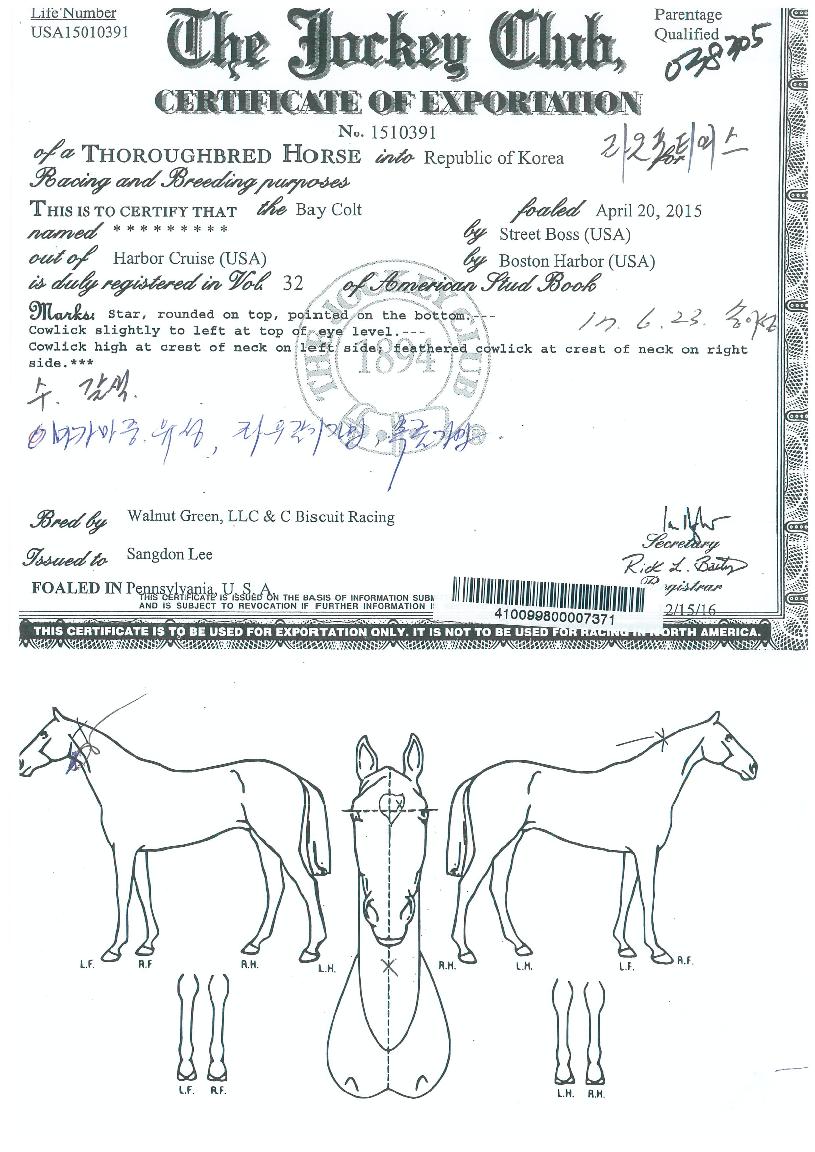 Life Number
USA15010391
Parentage
Qualified
038705
The Jockey Club,
CERTIFICATE OF EXPORTATION
No. 1510391
of a THOROUGHBRED HORSE into Republic of Korea for
Racing and Breeding purposes
THIS IS TO CERTIFY THAT the Bay Colt foaled April 20, 2015
named * * * * * * * * * by Street Boss (USA)
out of Harbor Cruise (USA) by Boston Harbor (USA)
is duly registered in Vol. 32 of American Stud Book
Marks: Star, rounded on top, pointed on the bottom.---
Cowlick slightly to left at top of eye level.---
Cowlick high at crest of neck on left side; feathered cowlick at crest of neck on right
side.***
THE JOCKEY CLUB
1894
17. 6. 23.
수. 갈색.
Bred by Walnut Green, LLC & C Biscuit Racing
Issued to Sangdon Lee
Secretary
Rick L. Bailey
Registrar
FOALED IN Pennsylvania, U. S. A.
THIS CERTIFICATE IS ISSUED ON THE BASIS OF INFORMATION SUBM
AND IS SUBJECT TO REVOCATION IF FURTHER INFORMATION
410099800007371
2/15/16
THIS CERTIFICATE IS TO BE USED FOR EXPORTATION ONLY. IT IS NOT TO BE USED FOR RACING IN NORTH AMERICA.
L.F. R.F R.H. L.H. R.H. L.H. L.F. R.F.
L.F. R.F. L.H. R.H.